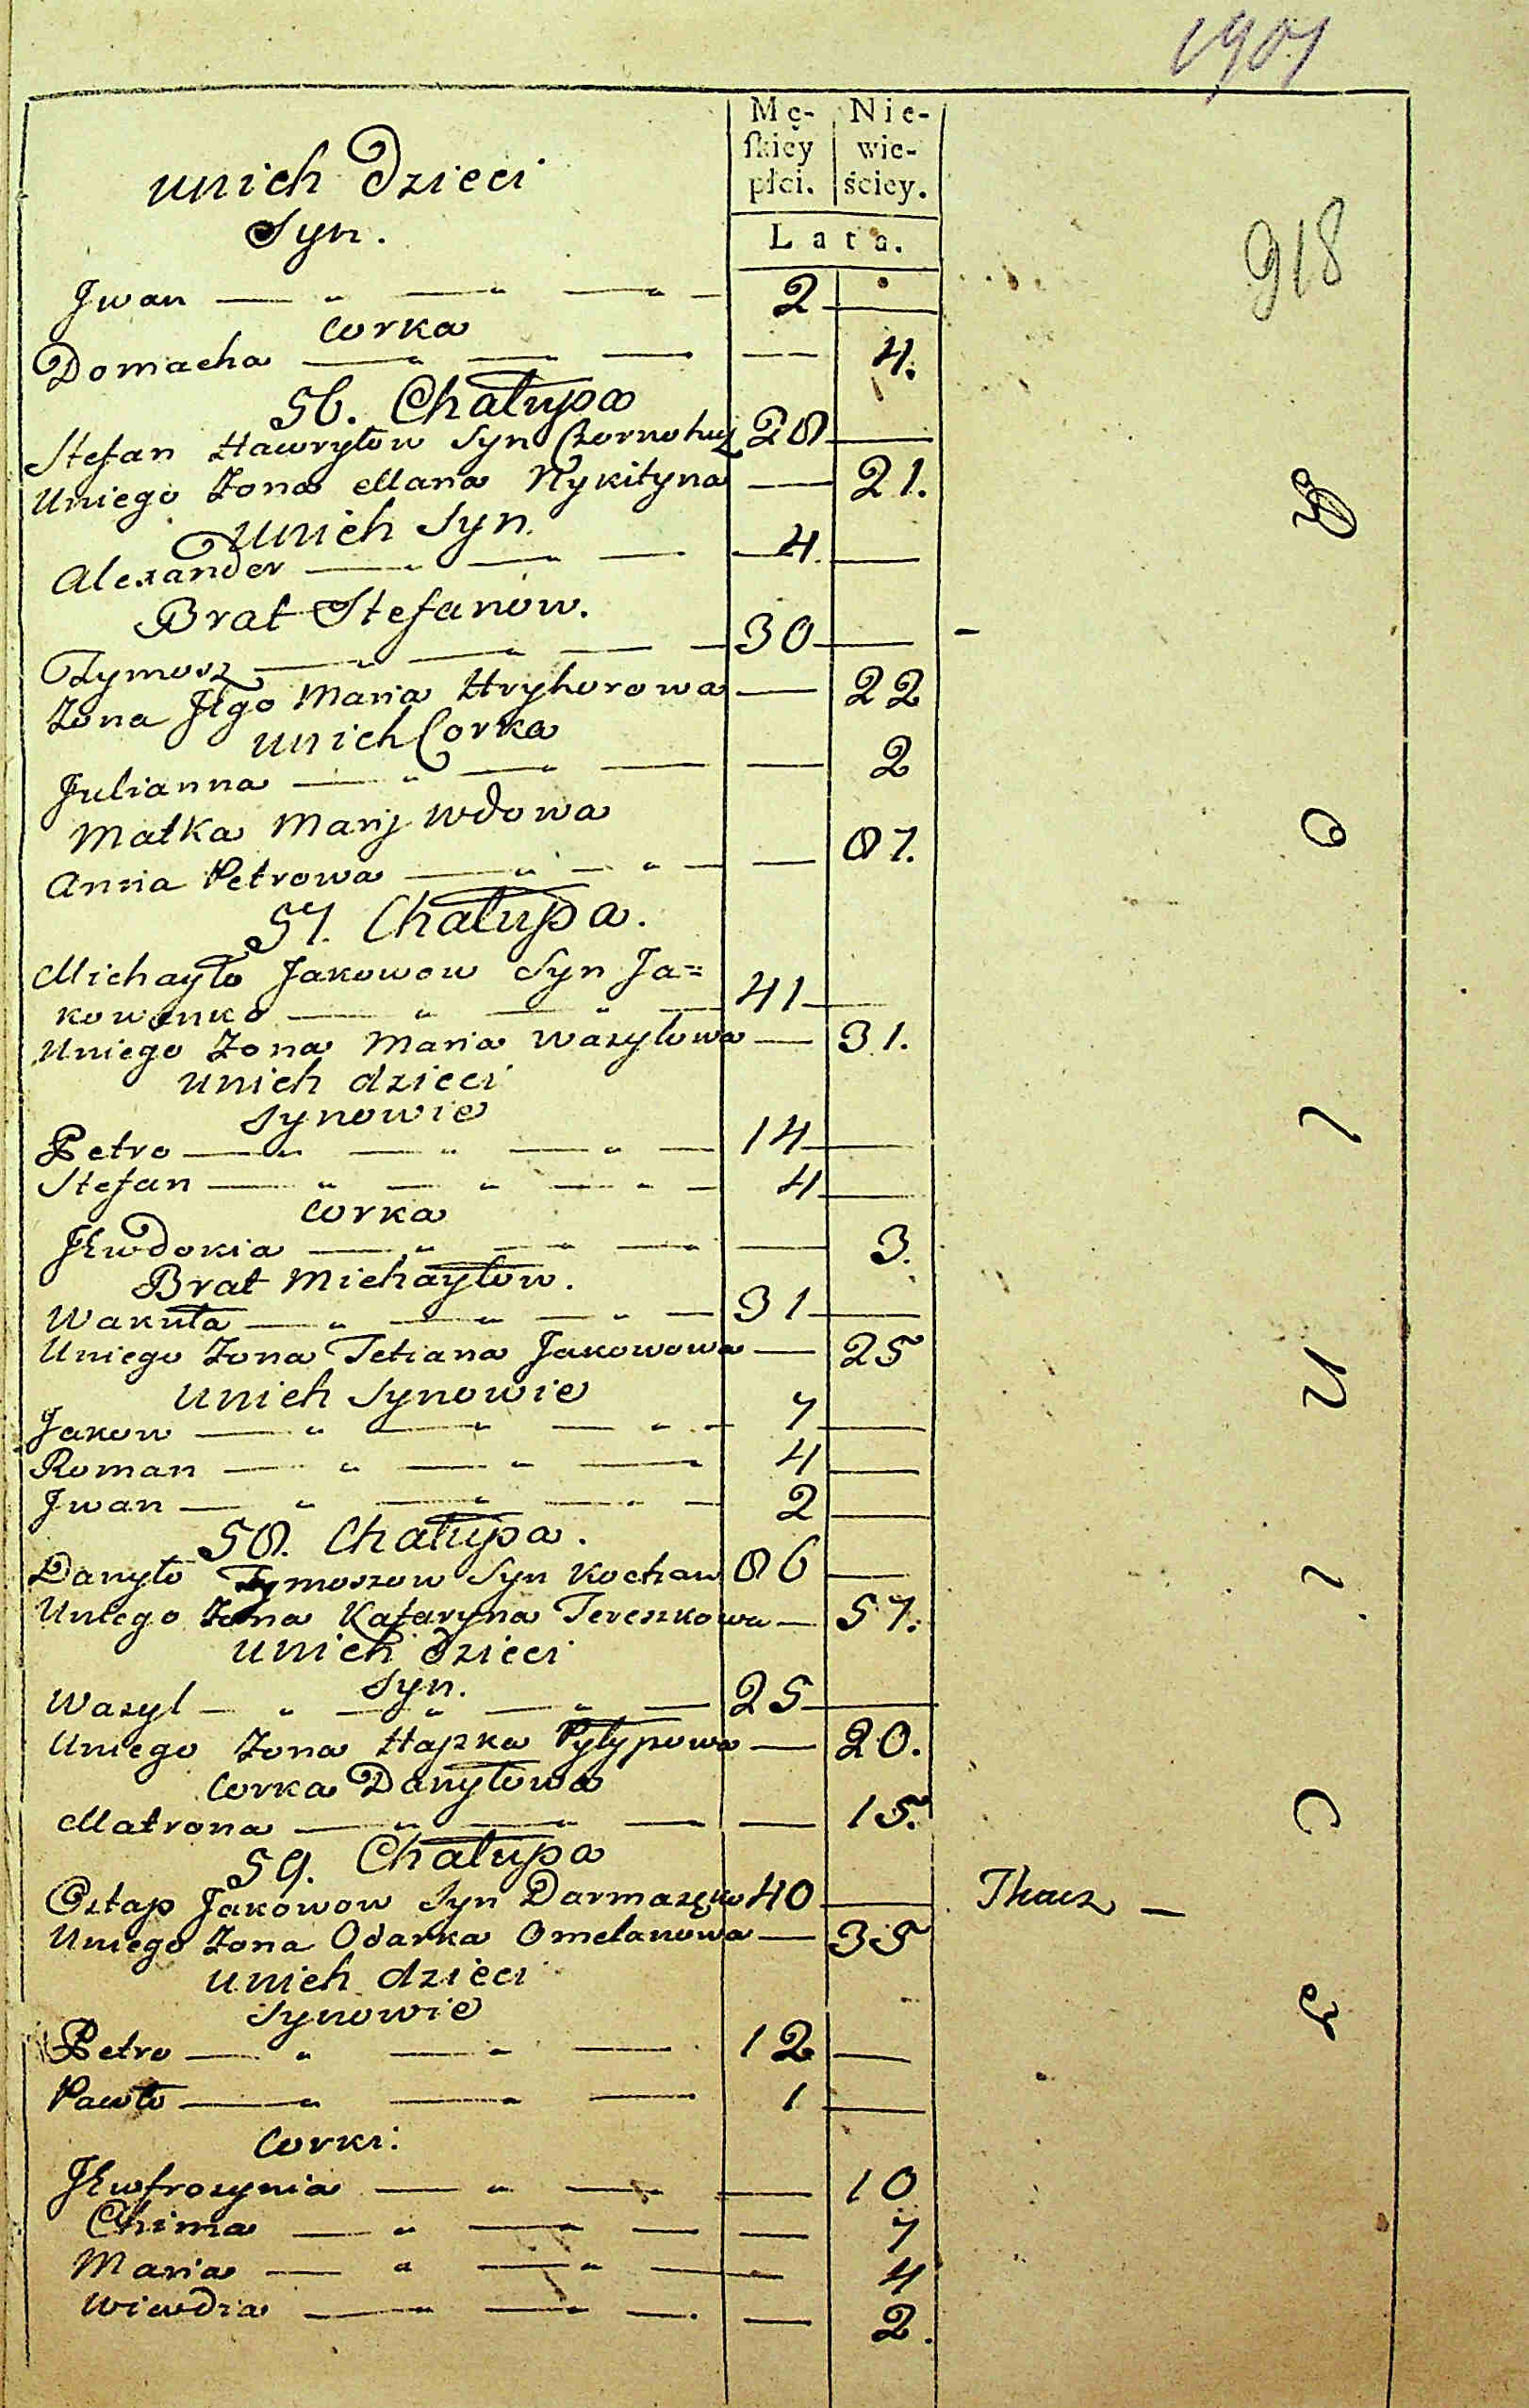 1901
Mę- Nie-
skiey wie-
płci. ściey.
Lata.
918
unich Dzieci
Syn.
Jwan — „ — „ — „ — 2 —
Corka
Domacha — „ — „ — — 4.
56. Chałupa
Stefan Hawryłow Syn Czornohuz 28 —
Uniego Żona Maria Nykityna — 21.
Unich Syn.
Alexander — „ — „ — 4. —
Brat Stefanow.
Tymosz — „ — „ — — 30 — -
Żona Jego Maria Hryhorowa — 22
unich Corka
Julianna — „ — „ — — 2
Matka Marij Wdowa
Anna Petrowa — „ — „ — — 87.
57. Chałupa.
Michayło Jakowow Syn Ja=
kowenko — „ — „ — 41 —
Uniego Żona Maria Wasylowa — 31.
unich dzieci
Synowie
Petro — „ — „ — „ — 14 —
Stefan — „ — „ — „ — 4 —
Corka
Jewdokia — „ — „ — „ — 3.
Brat Michayłow.
Wakuła — „ — „ — „ — 31 —
Uniego Żona Tetiana Jakowowa — 25
Unich Synowie
Jakow — „ — „ — „ — 7 —
Roman — „ — „ — 4 —
Jwan — „ — „ — „ — 2 —
58. Chałupa.
Danyło Tymoszow Syn Kochan 86 —
Uniego Żona Kataryna Tereszkowa — 57.
unich Dzieci
Syn.
Wasyl — „ — „ — „ — 25 —
Uniego Żona Hapka Pyłypowa — 20.
Corka Danyłowa
Matrona — „ — „ — — 15.
59. Chałupa
Ostap Jakowow Syn 40 — Tkacz —
Uniego Żona Odarka Omelanowa — 35
unich dzieci
Synowie
Petro — „ — „ — 12 —
Pawło — „ — „ — 1 —
Corki:
Jewfrosynia — „ — — 10
Chima — „ — „ — — 7
Maria — „ — „ — — 4
Wiwdia — „ — „ — — 2.